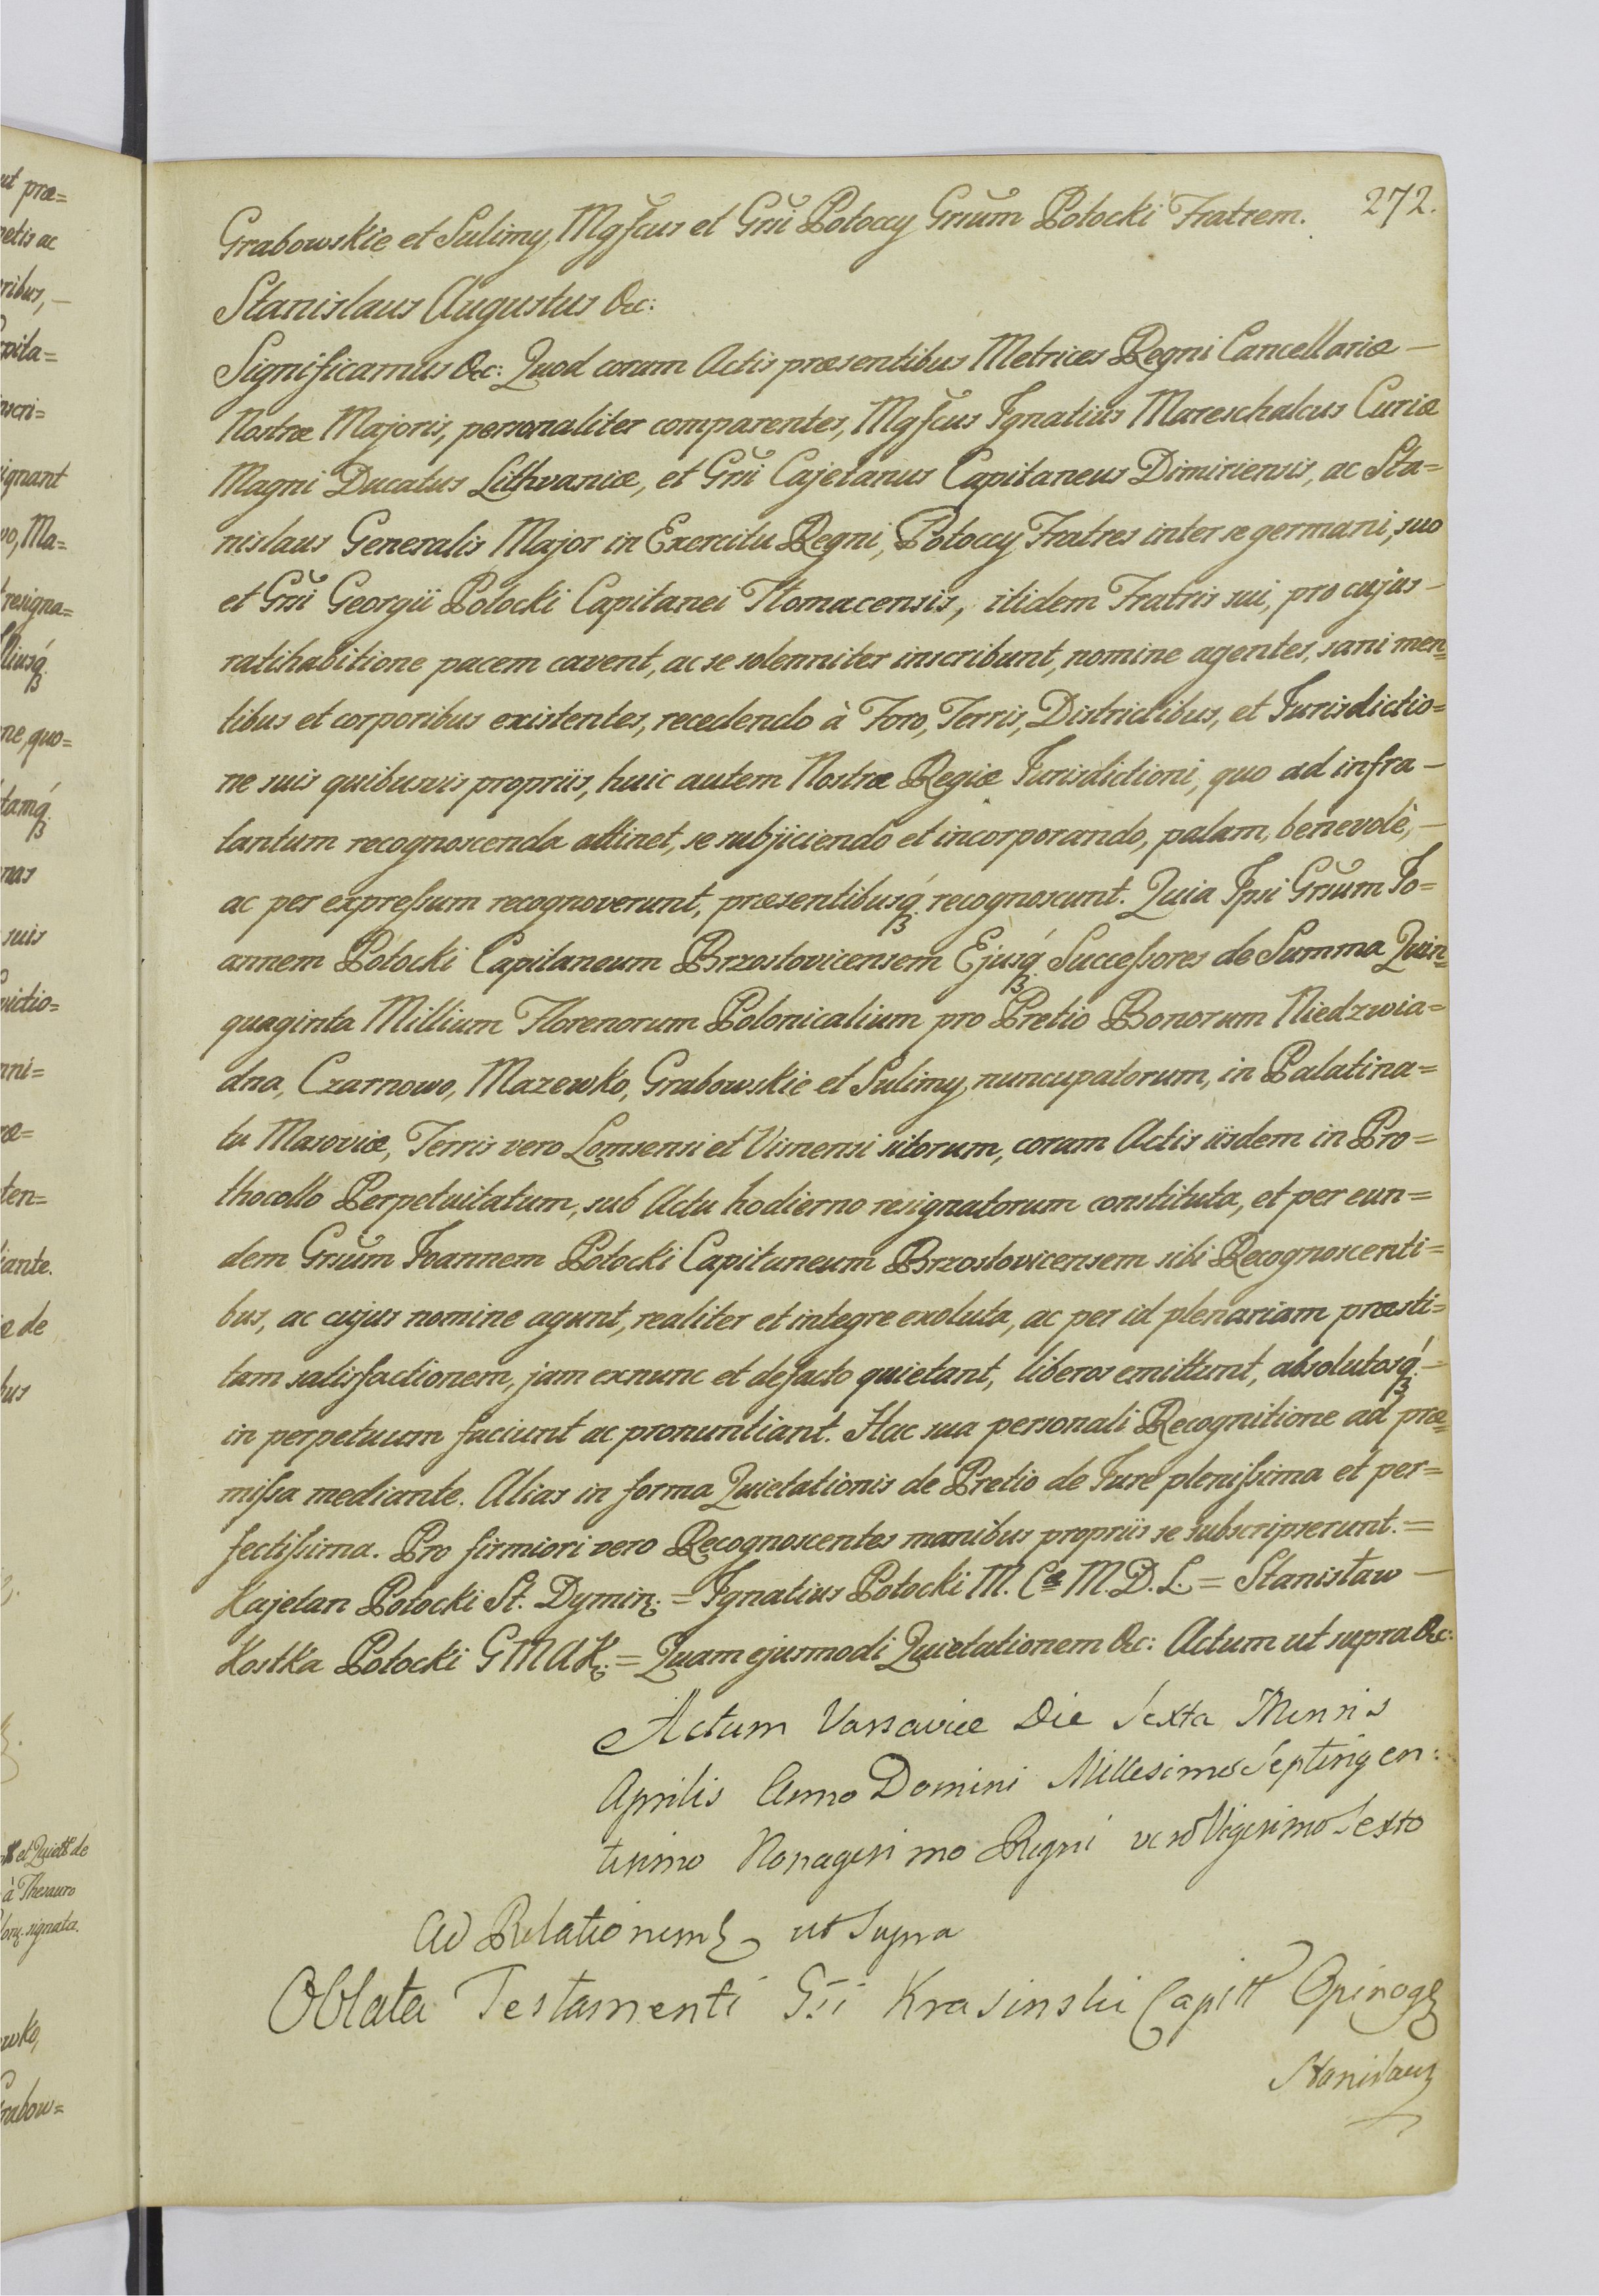 ut præ=
etis ac
ribus, —
pita=
nscri=
ignant
vo, Ma=
resigna=
ne, quo=
nas
suis
victio=
nni=
ræ=
ten=
iante.
æ de
bus
et Quiett de
à Thesauro
signata.
owko,
Grabow=
272.
Grabowskie et Sulimy, Mgfcus et Grsi Potoccy Grsum Potocki Fratrem.
Stanislaus Augustus &c:
Significamus &c: Quod coram Actis præsentibus Metrices Regni Cancellariæ —
Nostræ Majoris, personaliter comparentes, Mgfcus Ignatius Mareschalcus Curiæ
Magni Ducatus Lithvaniæ, et Grsi Cajetanus Capitaneus Dimiriensis, ac Sta=
nislaus Generalis Major in Exercitu Regni, Potoccy Fratres inter se germani, suo
et Grsi Georgii Potocki Capitanei Tlomacensis, itidem Fratris sui, pro cujus —
ratihabitione pacem cavent, ac se solenniter inscribunt, nomine agentes, sani men=
tibus et corporibus existentes, recedendo à Foro, Terris, Districtibus, et Jurisdictio=
ne suis quibusvis propriis, huic autem Nostræ Regiæ Jurisdictioni, quo ad infra —
tantum recognoscenda attinet, se subjiciendo et incorporando, palam, benevolè, —
ac per expreſsum recognoverunt, præsentibusq́ꝫ recognoscunt. Quia Ipsi Grsum Jo=
annem Potocki Capitaneum Brzostovicensem Ejusq́ꝫ Succeſsores de Summa Quin=
quaginta Millium Florenorum Polonicalium pro Pretio Bonorum Niedzwia=
dna, Czarnowo, Mazewko, Grabowskie et Sulimy nuncupatorum, in Palatina=
tu Masoviæ, Terris vero Lomsensi et Visnensi sitorum, coram Actis iisdem in Pro=
thocollo Perpetuitatum, sub Actu hodierno resignatorum constituta, et per eun=
dem Grsum Joannem Potocki Capitaneum Brzostovicensem sibi Recognoscenti=
bus, ac cujus nomine agunt, realiter et integre exoluta, ac per id plenariam præsti=
tam satisfactionem, jam exnunc et defacto quietant, liberos emittunt, absolutosq́ꝫ —
in perpetuum faciunt ac pronuntiant. Hac sua personali Recognitione ad præ=
miſsa mediante. Alias in forma Quietationis de Pretio de Jure pleniſsima et per=
fectiſsima. Pro firmiori vero Recognoscentes manibus propriis se subscripserunt. =
Kajetan Potocki St. Dymirz: = Ignatius Potocki M. Cæ M. D. L. = Stanisław —
Kostka Potocki GMAK: = Quam ejusmodi Quietationem &c: Actum ut supra &c:
Actum Varsaviæ Die Sexta Mensis
Aprilis Anno Domini Millesimo Septingen:
tesimo Nonagesimo Regni vero Vigesimo Sexto
Ad Relationem ut Supra
Oblata Testamenti Gsi Krasinski Capitt Opinog
Stanislaus